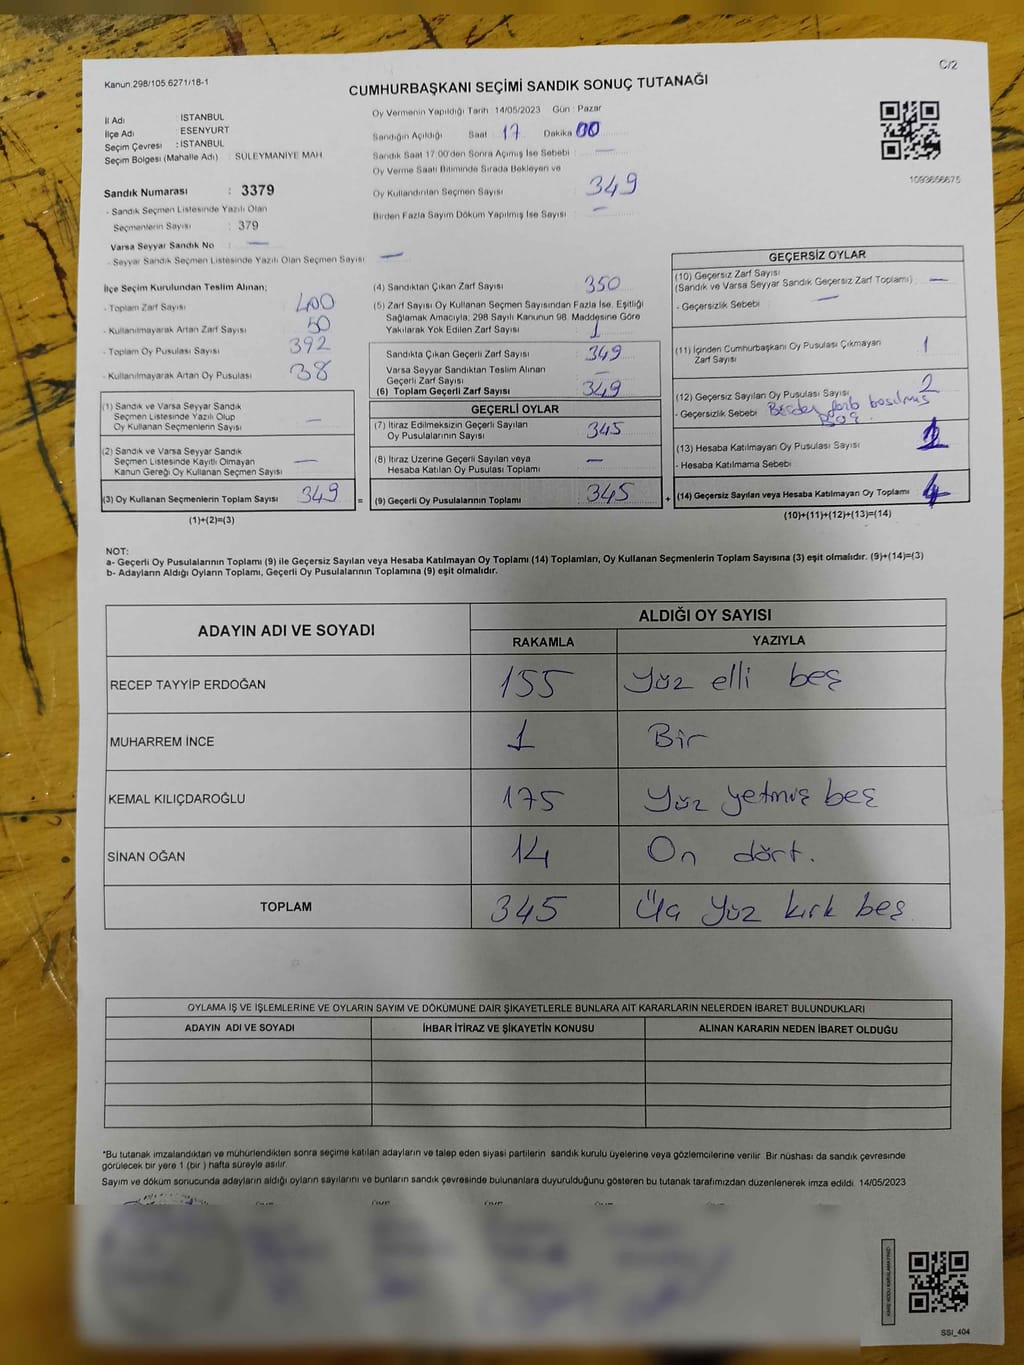 C/2
Kanun 298/105 6271/18-1
CUMHURBAŞKANI SEÇİMİ SANDIK SONUÇ TUTANAĞI
İl Adı : İSTANBUL
İlçe Adı : ESENYURT
Seçim Çevresi : İSTANBUL
Seçim Bölgesi (Mahalle Adı) : SÜLEYMANİYE MAH.
Sandık Numarası : 3379
- Sandık Seçmen Listesinde Yazılı Olan
Seçmenlerin Sayısı : 379
Varsa Seyyar Sandık No : —
- Seyyar Sandık Seçmen Listesinde Yazılı Olan Seçmen Sayısı —
Oy Vermenin Yapıldığı Tarih : 14/05/2023 Gün : Pazar
Sandığın Açıldığı Saat : 17 Dakika : 00
Sandık Saat 17:00'den Sonra Açılmış İse Sebebi : —
Oy Verme Saati Bitiminde Sırada Bekleyen ve
Oy Kullandırılan Seçmen Sayısı : 349
Birden Fazla Sayım Döküm Yapılmış İse Sayısı : —
1093656675
İlçe Seçim Kurulundan Teslim Alınan;
- Toplam Zarf Sayısı : 400
- Kullanılmayarak Artan Zarf Sayısı : 50
- Toplam Oy Pusulası Sayısı : 392
- Kullanılmayarak Artan Oy Pusulası : 38
(1) Sandık ve Varsa Seyyar Sandık
Seçmen Listesinde Yazılı Olup
Oy Kullanan Seçmenlerin Sayısı : —
(2) Sandık ve Varsa Seyyar Sandık
Seçmen Listesinde Kayıtlı Olmayan
Kanun Gereği Oy Kullanan Seçmen Sayısı : —
(3) Oy Kullanan Seçmenlerin Toplam Sayısı : 349 =
(1)+(2)=(3)
(4) Sandıktan Çıkan Zarf Sayısı : 350
(5) Zarf Sayısı Oy Kullanan Seçmen Sayısından Fazla İse, Eşitliği
Sağlamak Amacıyla, 298 Sayılı Kanunun 98. Maddesine Göre
Yakılarak Yok Edilen Zarf Sayısı : 1
Sandıkta Çıkan Geçerli Zarf Sayısı : 349
Varsa Seyyar Sandıktan Teslim Alınan
Geçerli Zarf Sayısı : —
(6) Toplam Geçerli Zarf Sayısı : 349
GEÇERLİ OYLAR
(7) İtiraz Edilmeksizin Geçerli Sayılan
Oy Pusulalarının Sayısı : 345
(8) İtiraz Üzerine Geçerli Sayılan veya
Hesaba Katılan Oy Pusulası Toplamı : —
(9) Geçerli Oy Pusulalarının Toplamı : 345 +
GEÇERSİZ OYLAR
(10) Geçersiz Zarf Sayısı
(Sandık ve Varsa Seyyar Sandık Geçersiz Zarf Toplamı) : —
- Geçersizlik Sebebi : —
(11) İçinden Cumhurbaşkanı Oy Pusulası Çıkmayan
Zarf Sayısı : 1
(12) Geçersiz Sayılan Oy Pusulası Sayısı : 2
- Geçersizlik Sebebi : basılmış
(13) Hesaba Katılmayan Oy Pusulası Sayısı : 1
- Hesaba Katılmama Sebebi
(14) Geçersiz Sayılan veya Hesaba Katılmayan Oy Toplamı : 4
(10)+(11)+(12)+(13)=(14)
NOT:
a- Geçerli Oy Pusulalarının Toplamı (9) ile Geçersiz Sayılan veya Hesaba Katılmayan Oy Toplamı (14) Toplamları, Oy Kullanan Seçmenlerin Toplam Sayısına (3) eşit olmalıdır. (9)+(14)=(3)
b- Adayların Aldığı Oyların Toplamı, Geçerli Oy Pusulalarının Toplamına (9) eşit olmalıdır.
ADAYIN ADI VE SOYADI ALDIĞI OY SAYISI
RAKAMLA YAZIYLA
RECEP TAYYİP ERDOĞAN 155 Yüz elli beş
MUHARREM İNCE 1 Bir
KEMAL KILIÇDAROĞLU 175 Yüz yetmiş beş
SİNAN OĞAN 14 On dört.
TOPLAM 345 Üç Yüz kırk beş
OYLAMA İŞ VE İŞLEMLERİNE VE OYLARIN SAYIM VE DÖKÜMÜNE DAİR ŞİKAYETLERLE BUNLARA AİT KARARLARIN NELERDEN İBARET BULUNDUKLARI
ADAYIN ADI VE SOYADI İHBAR İTİRAZ VE ŞİKAYETİN KONUSU ALINAN KARARIN NEDEN İBARET OLDUĞU
*Bu tutanak imzalandıktan ve mühürlendikten sonra seçime katılan adayların ve talep eden siyasi partilerin sandık kurulu üyelerine veya gözlemcilerine verilir. Bir nüshası da sandık çevresinde
görülecek bir yere 1 (bir ) hafta süreyle asılır.
Sayım ve döküm sonucunda adayların aldığı oyların sayılarını ve bunların sandık çevresinde bulunanlara duyurulduğunu gösteren bu tutanak tarafımızdan düzenlenerek imza edildi. 14/05/2023
SSI_404